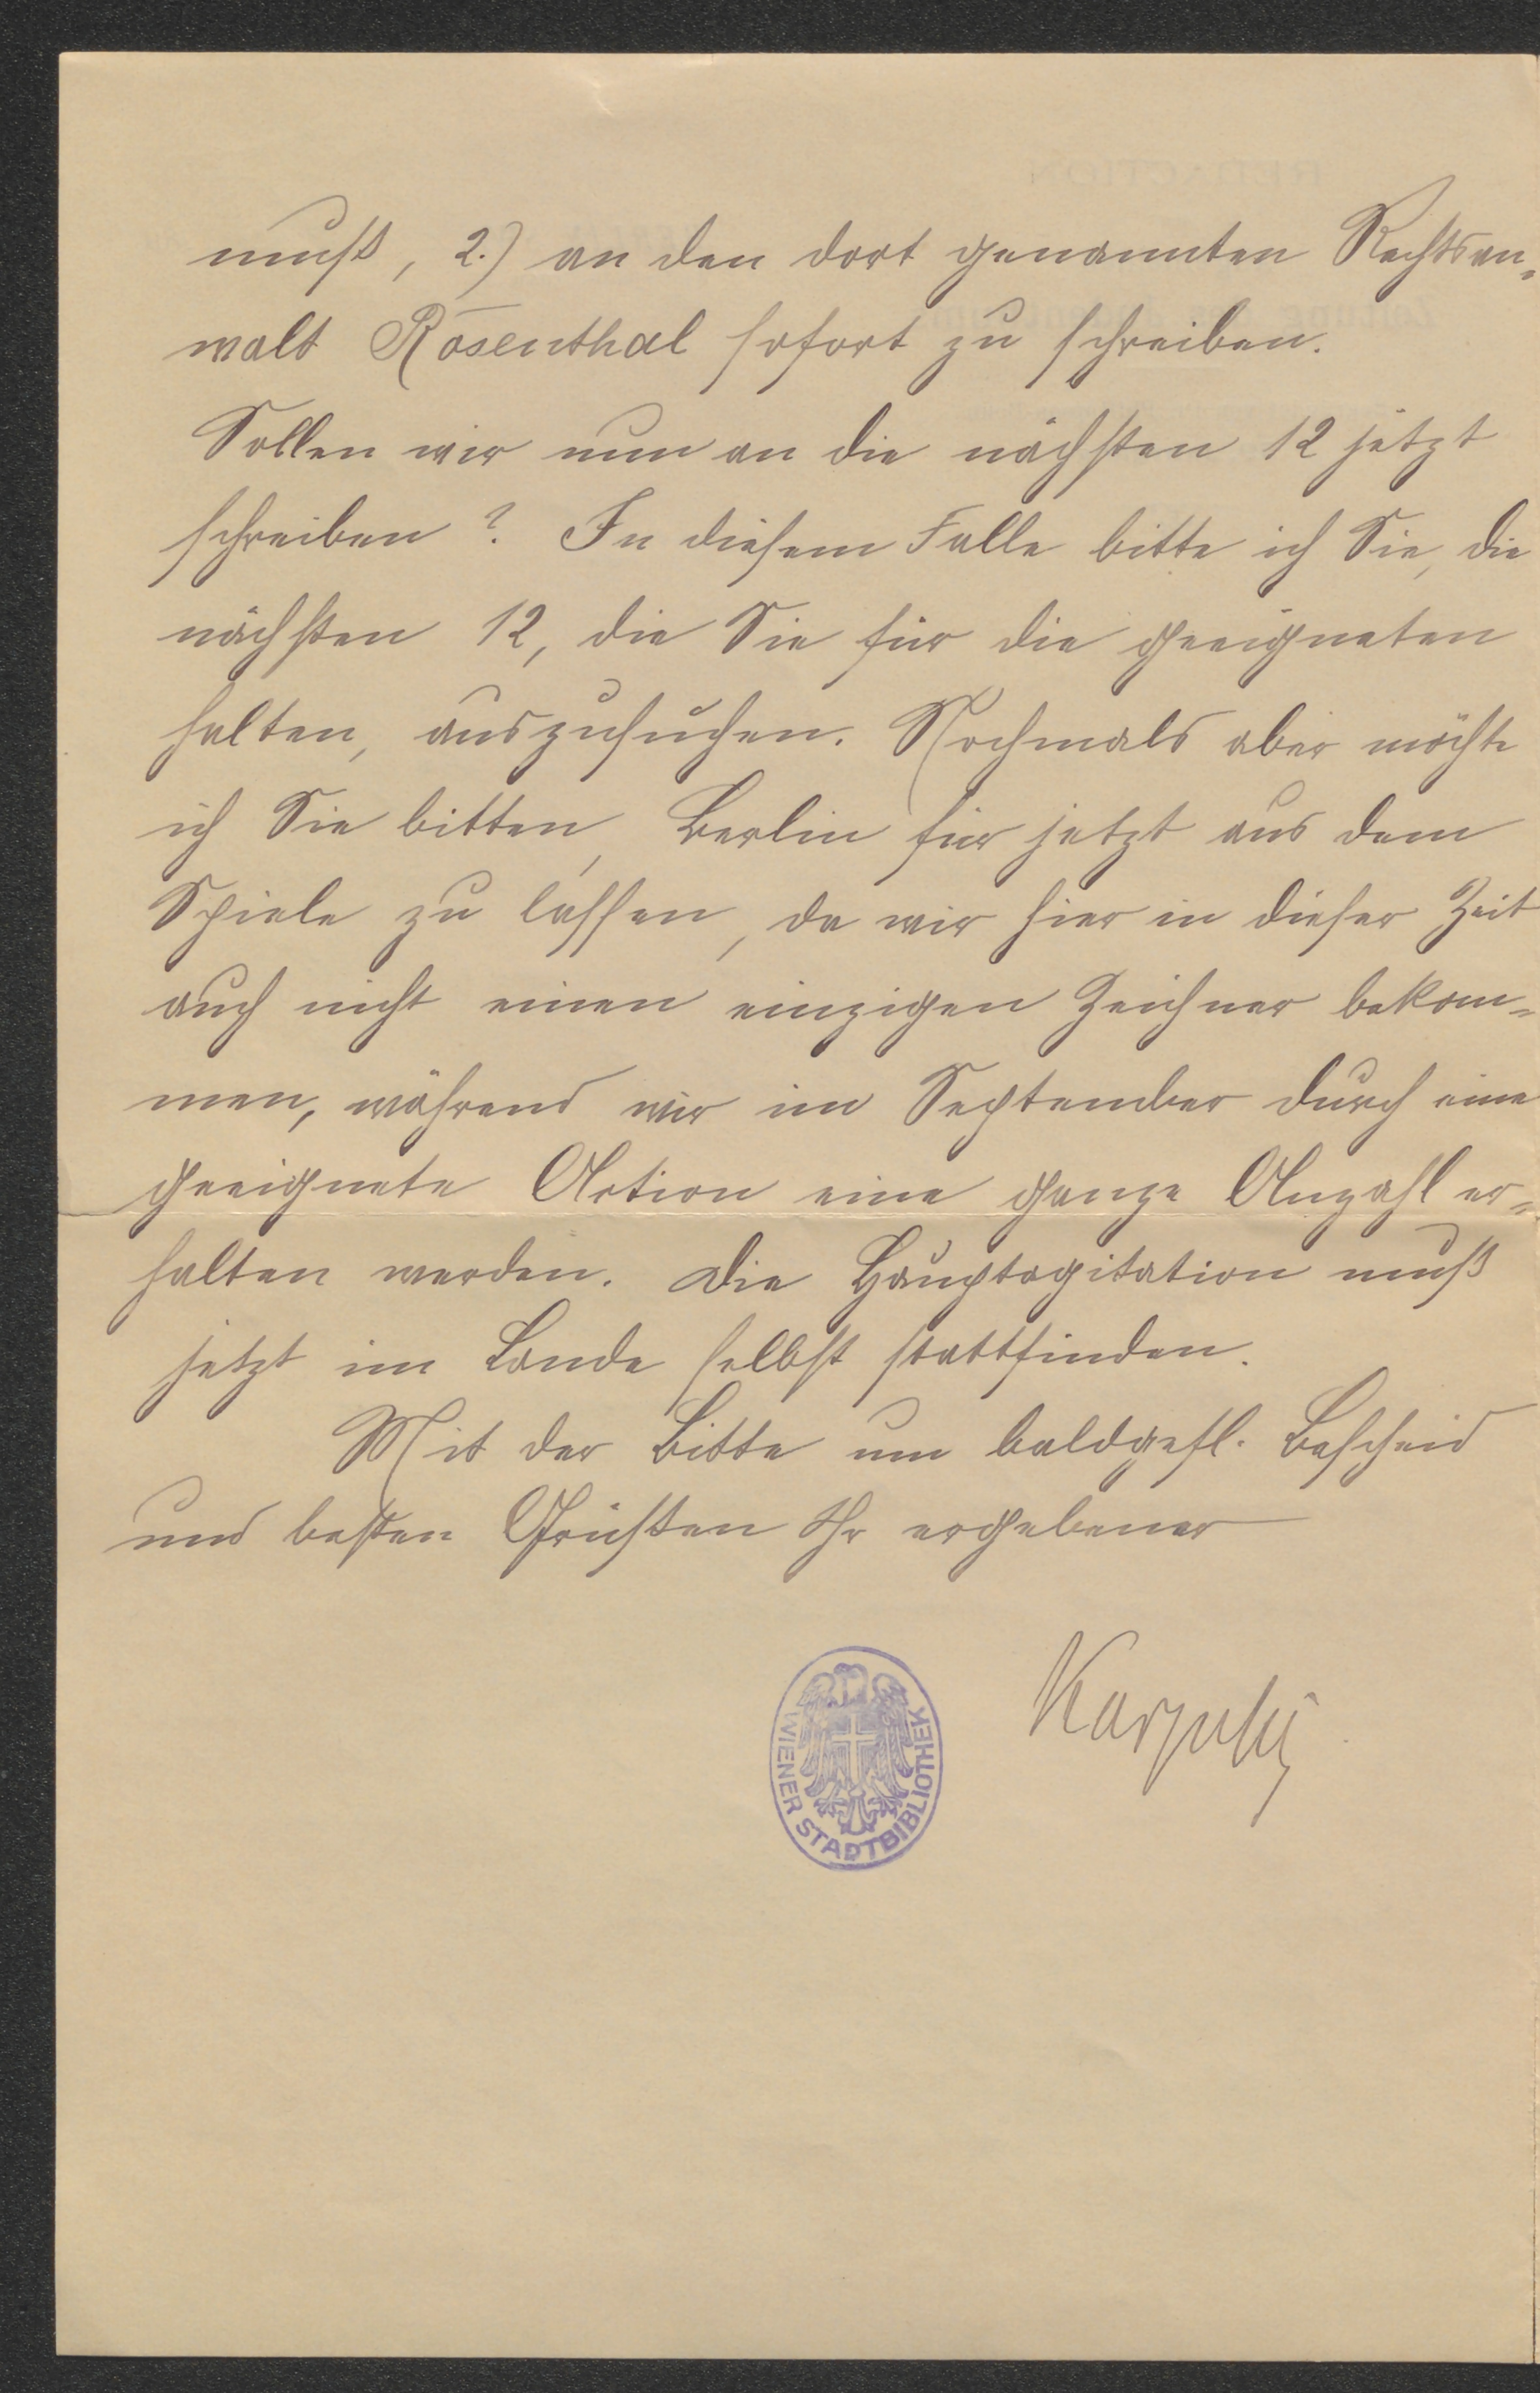 muß, 2.) an den dort genannten Rechtsan-
walt Rosenthal sofort zu schreiben.
Sollen wir nun an die nächsten 12 jetzt
schreiben? In diesem Falle bitte ich Sie, die
nächsten 12, die Sie für die geeigneten
halten, auszusuchen. Nochmals aber möchte
ich Sie bitten, Berlin für jetzt aus dem
Spiele zu lassen, da wir hier in dieser Zeit
auch nicht einen einzigen Zeichner bekom-
men, während wir im September durch eine
geeignete Aktion eine ganze Anzahl er-
halten werden. Die Hauptagitation muß
jetzt im Lande selbst stattfinden.
Mit der Bitte um baldgefl. Bescheid
und besten Grüßen Ihr ergebener
Karpeles
WIENER STADTBIBLIOTHEK